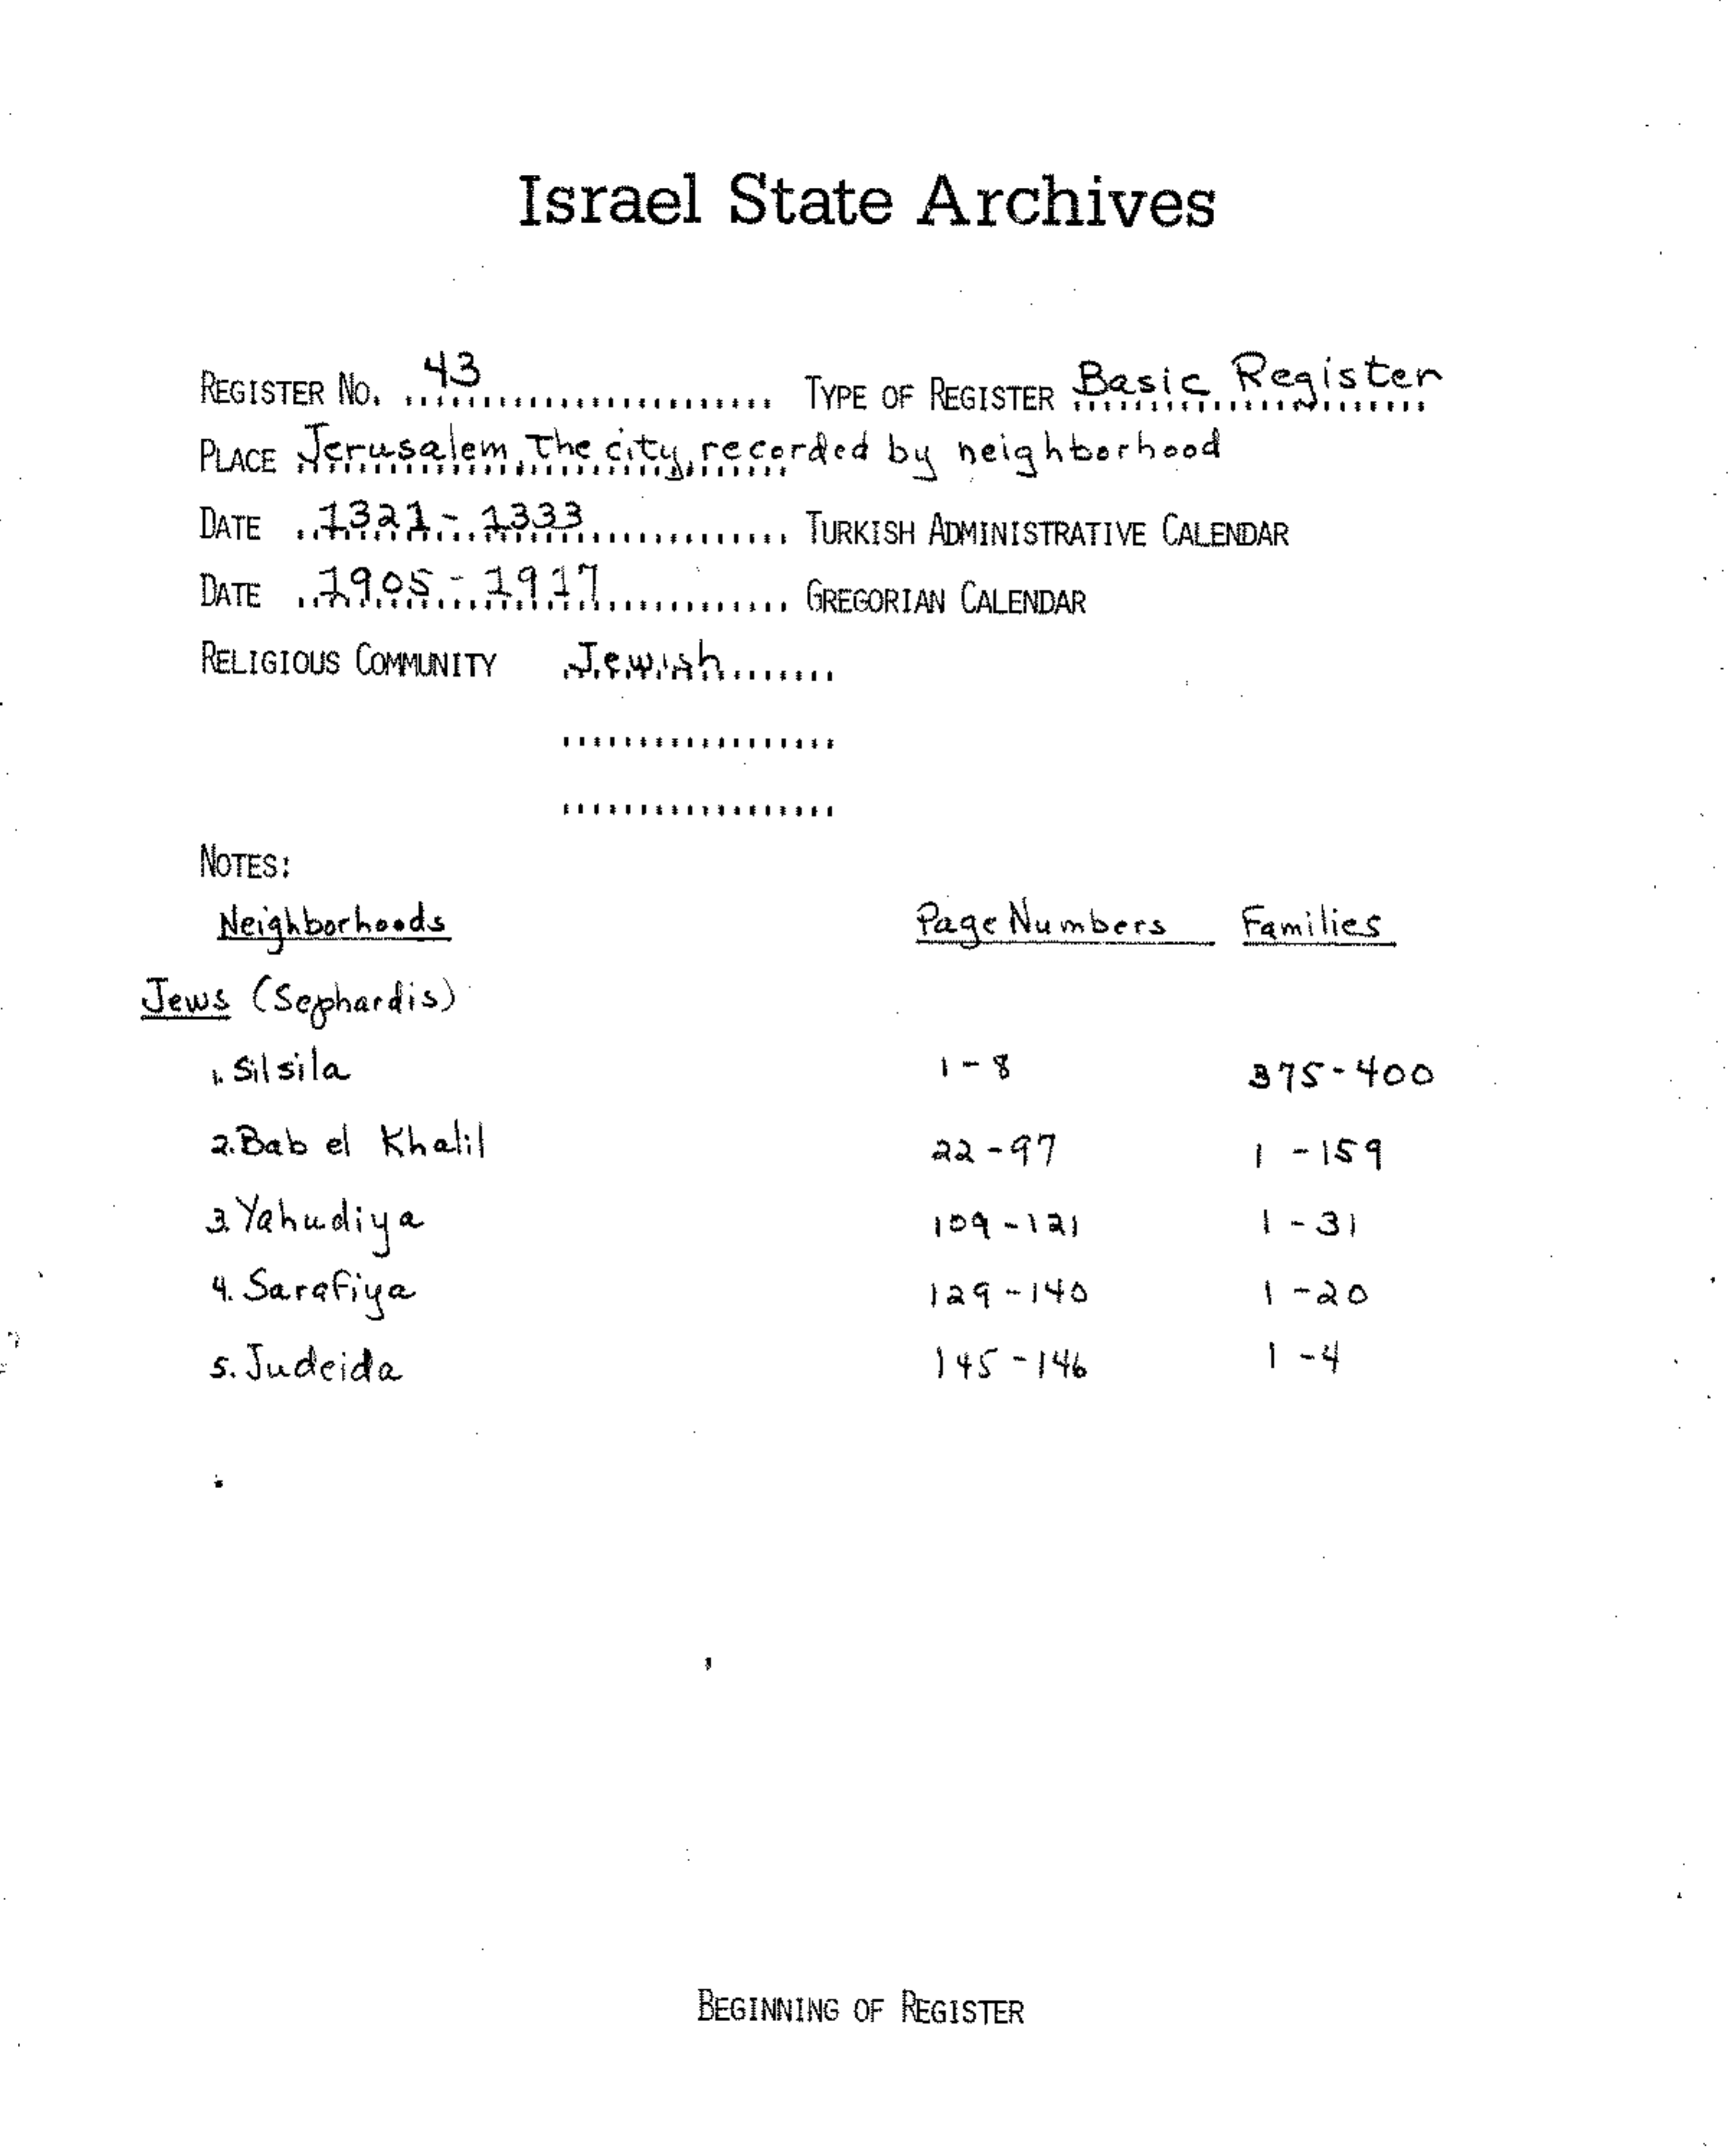 Israel State Archives
REGISTER NO. 43 TYPE OF REGISTER Basic Register
PLACE Jerusalem, The city, recorded by neighborhood
DATE 1321 - 1333 TURKISH ADMINISTRATIVE CALENDAR
DATE 1905 - 1917 GREGORIAN CALENDAR
RELIGIOUS COMMUNITY Jewish
NOTES:
Neighborhoods Page Numbers Families
Jews (Sephardis)
1. Silsila 1 - 8 375 - 400
2. Bab el Khalil 22 - 97 1 - 159
3. Yahudiya 109 - 121 1 - 31
4. Sarafiya 129 - 140 1 - 20
5. Judeida 145 - 146 1 - 4
BEGINNING OF REGISTER